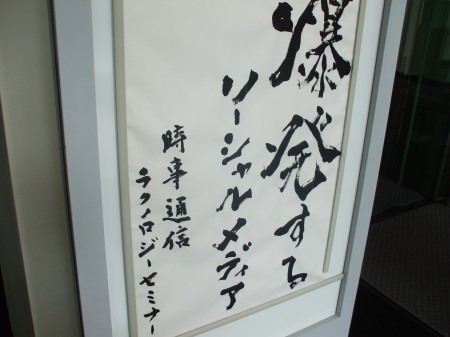 爆発する
ソーシャルメディア
時事通信
テクノロジーセミナー